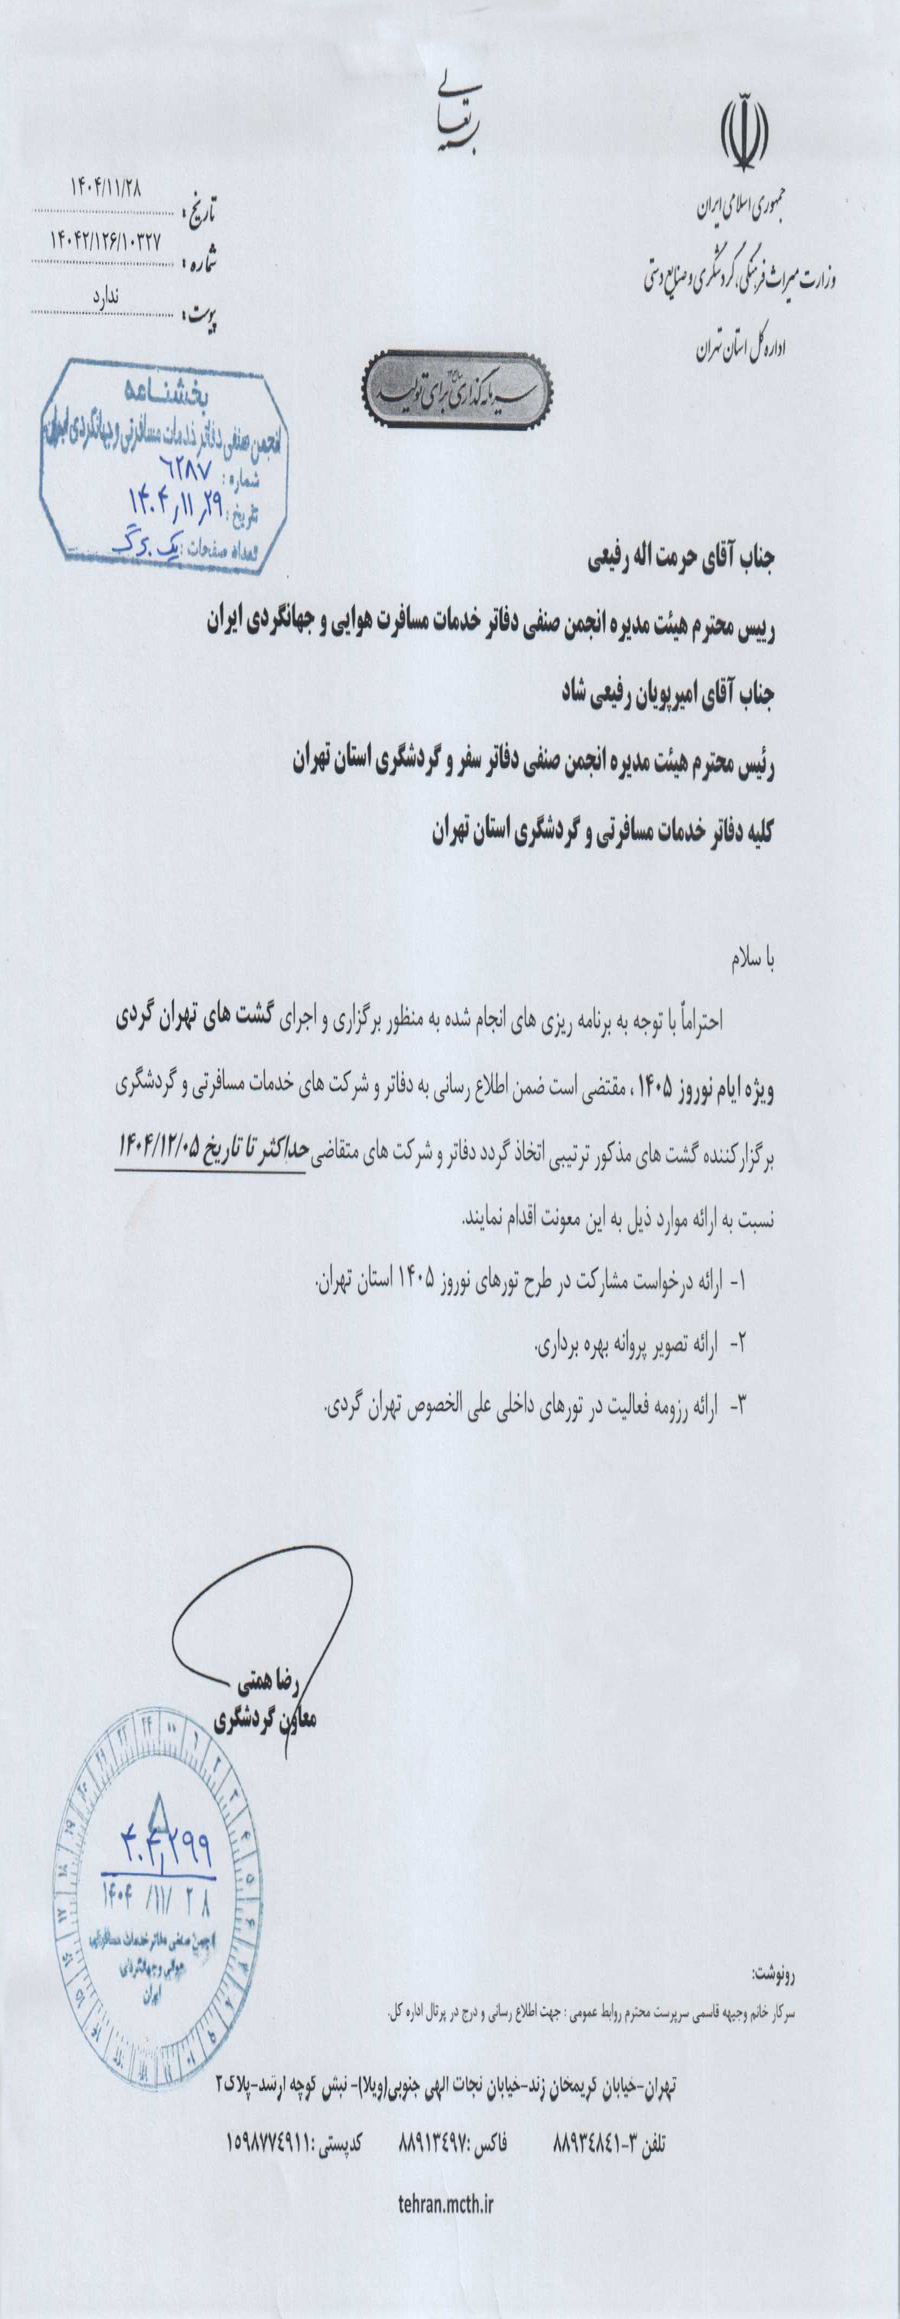 بسمه تعالی
جمهوری اسلامی ایران
وزارت میراث فرهنگی، گردشگری و صنایع دستی
اداره کل استان تهران
تاریخ : ۱۴۰۴/۱۱/۲۸
شماره : ۱۴۰۴۲/۱۲۶/۱۰۳۲۷
پیوست : ندارد
سرمایه گذاری برای تولید
بخشنامه
انجمن صنفی دفاتر خدمات مسافرتی و جهانگردی ایران
شماره : ۶۲۸۷
تاریخ : ۱۴۰۴,۱۱,۲۹
تعداد صفحات : یک برگ
جناب آقای حرمت اله رفیعی
رییس محترم هیئت مدیره انجمن صنفی دفاتر خدمات مسافرت هوایی و جهانگردی ایران
جناب آقای امیرپویان رفیعی شاد
رئیس محترم هیئت مدیره انجمن صنفی دفاتر سفر و گردشگری استان تهران
کلیه دفاتر خدمات مسافرتی و گردشگری استان تهران
با سلام
احتراماً با توجه به برنامه ریزی های انجام شده به منظور برگزاری و اجرای گشت های تهران گردی
ویژه ایام نوروز ۱۴۰۵ ، مقتضی است ضمن اطلاع رسانی به دفاتر و شرکت های خدمات مسافرتی و گردشگری
برگزارکننده گشت های مذکور ترتیبی اتخاذ گردد دفاتر و شرکت های متقاضی حداکثر تا تاریخ ۱۴۰۴/۱۲/۰۵
نسبت به ارائه موارد ذیل به این معونت اقدام نمایند.
۱- ارائه درخواست مشارکت در طرح تورهای نوروز ۱۴۰۵ استان تهران.
۲- ارائه تصویر پروانه بهره برداری.
۳- ارائه رزومه فعالیت در تورهای داخلی علی الخصوص تهران گردی.
رضا همتی
معاون گردشگری
۱۴۰۴ /۱۱/ ۲۸
انجمن صنفی دفاتر خدمات مسافرتی
هوائی و جهانگردی
ایران
رونوشت:
سرکار خانم وجیهه قاسمی سرپرست محترم روابط عمومی : جهت اطلاع رسانی و درج در پرتال اداره کل.
تهران-خیابان کریمخان زند-خیابان نجات الهی جنوبی(ویلا)- نبش کوچه ارشد-پلاک۲
تلفن ۳-۸۸۹۳٤۸٤۱ فاکس :۸۸۹۱۳٤۹۷ کدپستی :۱۵۹۸۷۷٤۹۱۱
tehran.mcth.ir